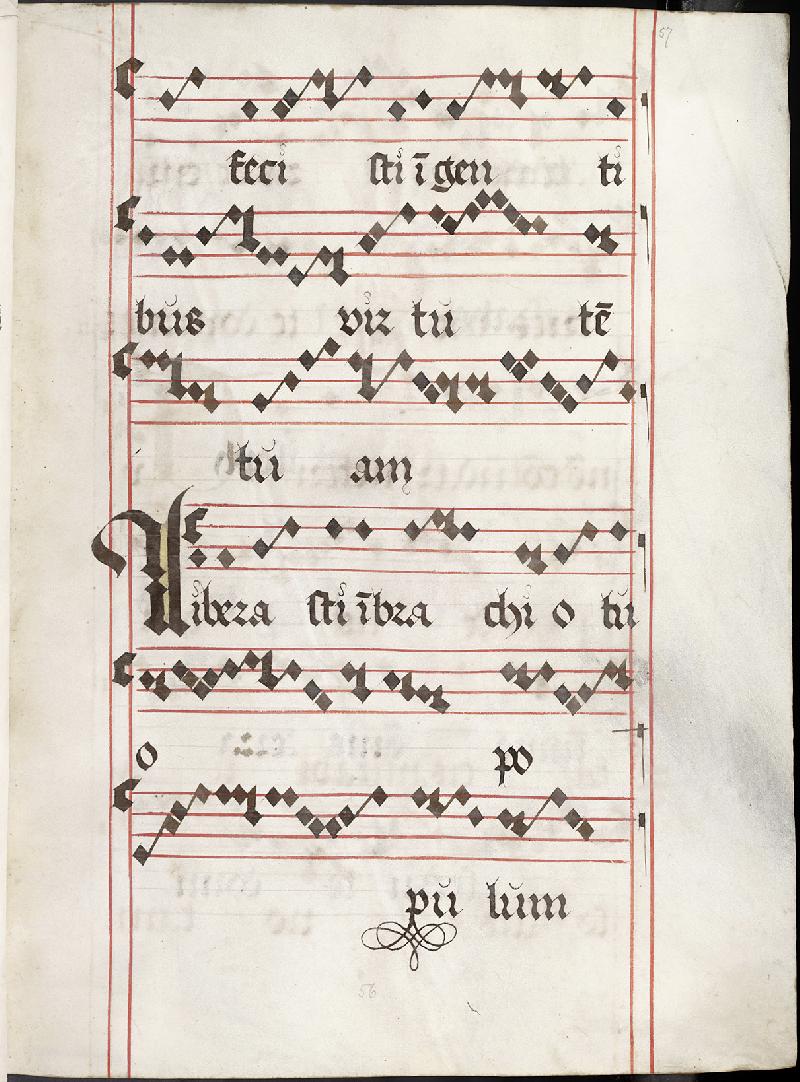 57
feci sti ī gen ti
bus vir tu tē
tu am
Libera sti ī bra chi o tu
o po
pu lum
56